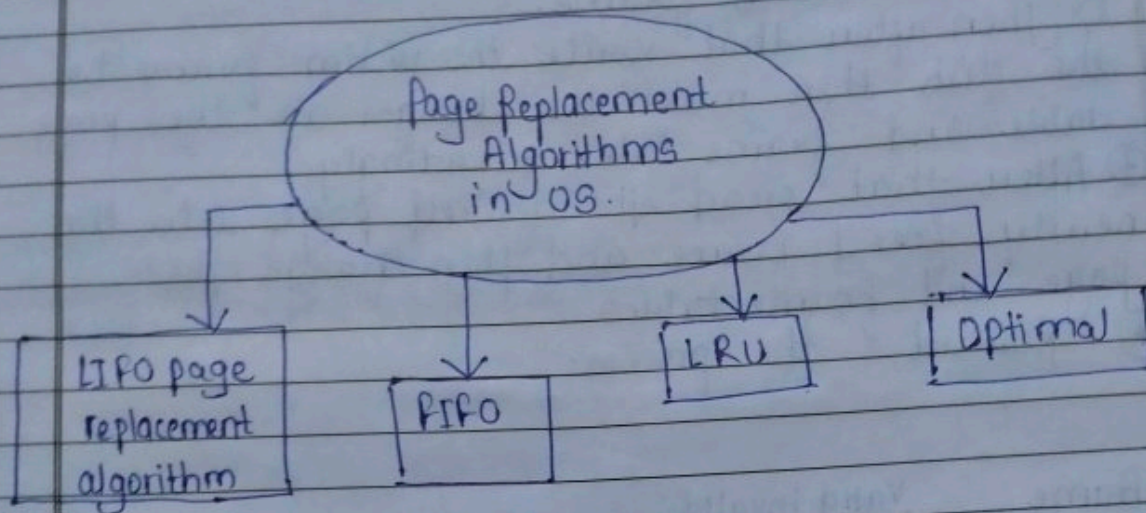 Page Replacement
Algorithms
in OS.
LIFO page
replacement
algorithm
FIFO
LRU
Optimal